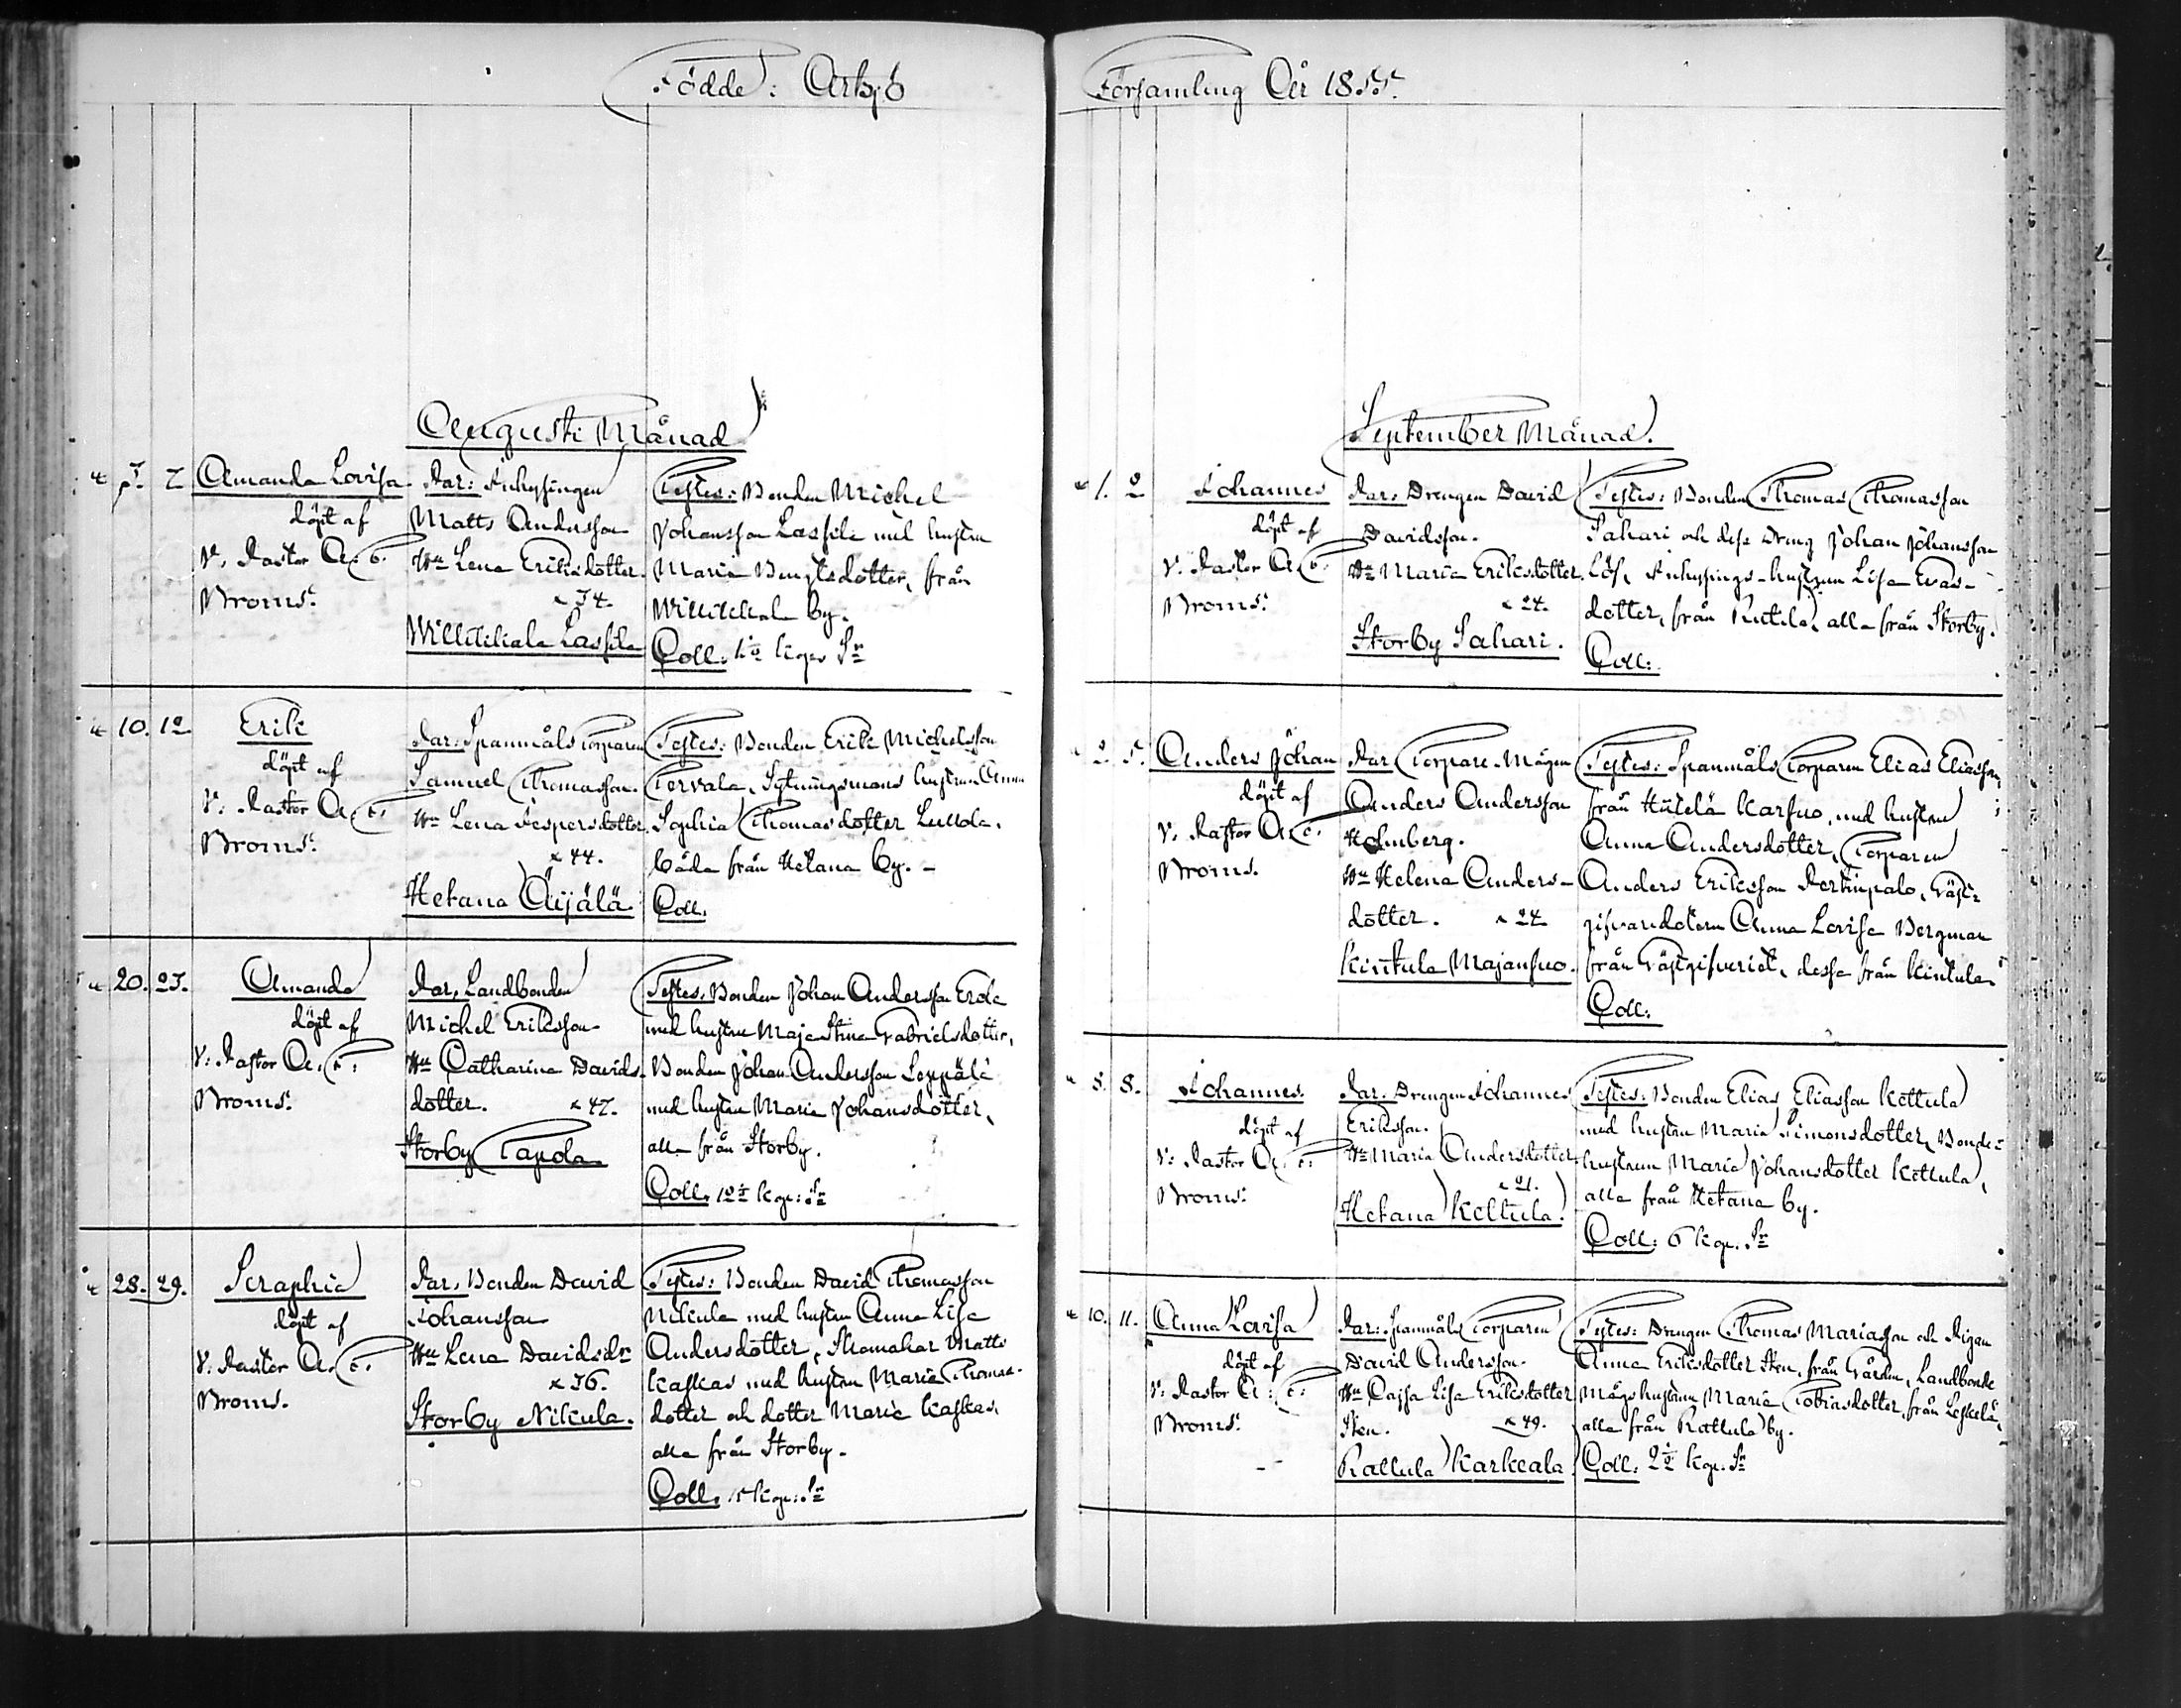 Födde: Ackas
Församling År 1855.
Augusti Månad
5. 7 Amanda Lovisa
döpt af
V. Pastor A. E.
Broms.
Par: Inhysingen
Matts Andersson
Hu Lena Eriksdotter.
34.
Willikkala Lassila
Testes: Bonden Michel
Johansson Lassila med hustru
Maria Bengtsdotter, från
Willikkala by.
Coll:
10. 12 Erik
döpt af
V. Pastor A. E.
Broms.
Par: Spannmåls Torparen
Samuel Thomasson.
Hu Lena Jespersdotter.
44.
Hetana Äijälä
Testes: Bonden Erik Michelsson
Tervala, Sytningsmans hustrun Anna
Sophia Thomasdotter
båda från Hetana by.
Coll.
20. 23. Amanda
döpt af
V: Pastor A. E.
Broms.
Par. Landbonden
Michel Eriksson
Hu Catharina Davids-
dotter. 47.
Storby Tapola
Testes. Bonden Johan Andersson Erola
med hustru Maja Stina Gabrielsdotter,
Bonden Johan Andersson Seppälä
med hustru Maria Johansdotter,
alla från Storby.
Coll. 12 kop: Sr
28. 29. Seraphia
döpt af
V: Pastor A. E.
Broms.
Par. Bonden David
Johansson
Hu Lena Davidsdr
36.
Storby Nikula.
Testes: Bonden David Thomasson
Nikula med hustru Anna Lisa
Andersdotter, Skomakar Matts
Kaskas med hustru Maria Thomas-
dotter och dotter Maria Kaskas,
alla från Storby.
Coll. 15 kop: Sr
September Månad.
1. 2 Johannes
döpt af
V. Pastor A. E.
Broms.
Par. Drengen David
Davidsson.
Hu Maria Eriksdotter.
24.
Storby Sahari.
Testes: Bonden Thomas Thomasson
Sahari och dess dreng Johan Johansson
Inhysings-hustrun Lisa Evas-
dotter, från alla från Storby.
Coll:
2. 5. Anders Johan
döpt af
V. Pastor A. E.
Broms.
Par Torpare-Mågen
Anders Andersson
Holmberg.
Hu Helena Anders-
dotter. 24
Kintula Majansuo.
Testes: Spannmåls Torparen Elias Eliasson
från Hütelä Karsuo, med hustru
Anna Andersdotter, Torparen
Anders Eriksson Gäst-
gifvaredottern Anna Lovisa Bergman
från Gästgifveriet, dessa från Kintula.
Coll:
8. Johannes.
döpt af
V: Pastor A. E.
Broms.
Par. Drengen Johannes
Eriksson.
Hu Maria Andersdotter.
21.
Hetana Kettula.
Testes: Bonden Elias Eliasson Kettula
med hustru Maria Simonsdotter, Bonde-
hustrun Maria Johansdotter Kettula,
alla från Hetana by.
Coll: 6 kop. Sr
10. 11. Anna Lovisa
döpt af
V: Pastor A. E.
Broms.
Par: Spannmåls Torparen
David Andersson.
Hu Cajsa Lisa Eriksdotter
Sten. 49.
Rattula Karkeala
Testes: Drengen Thomas Mariason och Pigan
Anna Eriksdotter Sten, från Gården, Landbonde
Mågs hustrun Maria Tobiasdotter, från
alla från Rattula by.
Coll: 2½ kop. Sr